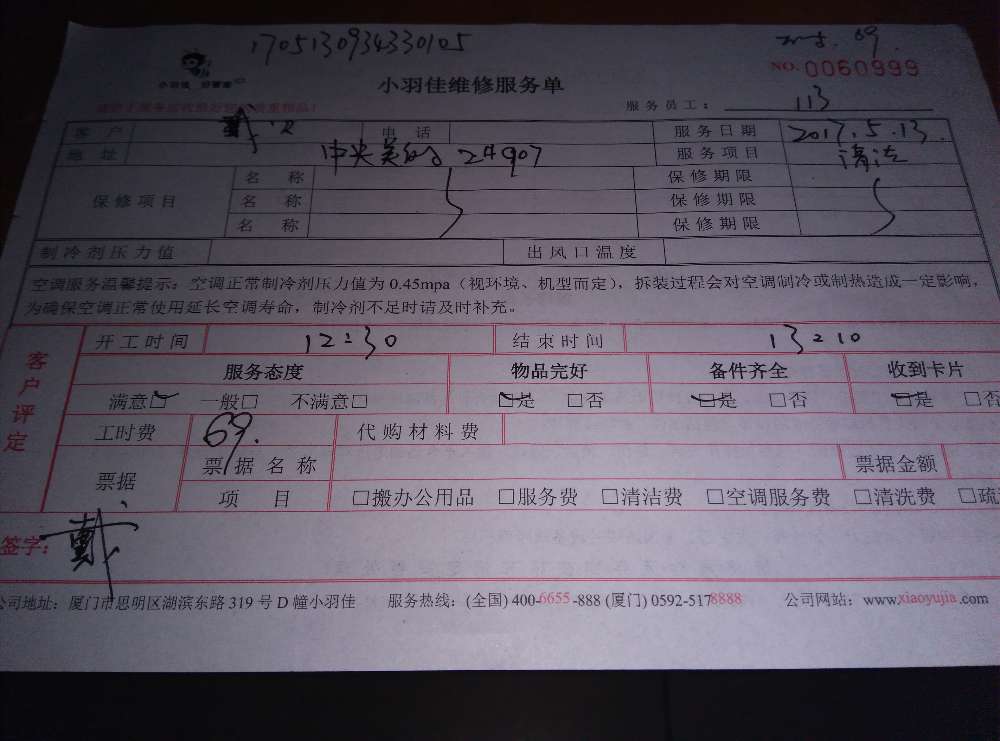 1705130934330105
69.
NO. 0060999
小羽佳
小羽佳维修服务单
服务员工： 113
客 户 戴 电 话 服务日期 2017.5.13.
地 址 中央美 24907 服务项目 清洁
保修项目 名 称 保修期限
名 称 保修期限
名 称 保修期限
制冷剂压力值 出风口温度
空调服务温馨提示：空调正常制冷剂压力值为 0.45mpa（视环境、机型而定），拆装过程会对空调制冷或制热造成一定影响，
为确保空调正常使用延长空调寿命，制冷剂不足时请及时补充。
客户评定
开工时间 12:30 结束时间 13:10
服务态度 物品完好 备件齐全 收到卡片
满意☑ 一般□ 不满意□ ☑是 □否 ☑是 □否 ☑是 □否
工时费 69. 代购材料费
票据 票 据 名 称 票据金额
项 目 □搬办公用品 □服务费 □清洁费 □空调服务费 □清洗费 □疏
签字： 戴
公司地址：厦门市思明区湖滨东路 319 号 D 幢小羽佳 服务热线：(全国) 400-6655-888 (厦门) 0592-5178888 公司网站：www.xiaoyujia.com